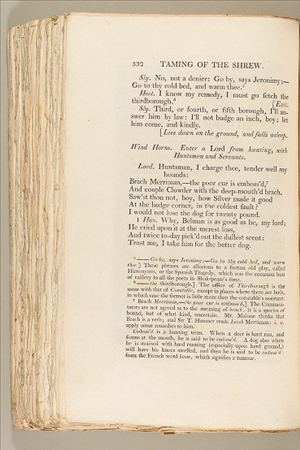 332 TAMING OF THE SHREW.
Sly. No, not a denier: Go by, says Jeronimy;—
Go to thy cold bed, and warm thee.⁵
Host. I know my remedy, I must go fetch the
thirdborough.⁶ [Exit.
Sly. Third, or fourth, or fifth borough, I'll an-
swer him by law: I'll not budge an inch, boy; let
him come, and kindly.
[Lies down on the ground, and falls asleep.
Wind Horns. Enter a Lord from hunting, with
Huntsmen and Servants.
Lord. Huntsman, I charge thee, tender well my
hounds:
Brach Merriman,—the poor cur is emboss'd,⁷
And couple Clowder with the deep-mouth'd brach.
Saw'st thou not, boy, how Silver made it good
At the hedge corner, in the coldest fault?
I would not lose the dog for twenty pound.
1 Hun. Why, Belman is as good as he, my lord;
He cried upon it at the merest loss,
And twice to-day pick'd out the dullest scent:
Trust me, I take him for the better dog.
⁵ —— Go by, says Jeronimy;—Go to thy cold bed, and warm
thee.] These phrases are allusions to a fustian old play, called
Hieronymo, or the Spanish Tragedy, which was the common butt
of raillery to all the poets in Shakspeare's time.
⁶ —— the thirdborough.] The office of Thirdborough is the
same with that of Constable, except in places where there are both,
in which case the former is little more than the constable's assistant.
⁷ Brach Merriman,—the poor cur is emboss'd,] The Commenta-
tors are not agreed as to the meaning of brach: it is a species of
hound, but of what kind, uncertain. Mr. Malone thinks that
Brach is a verb; and Sir T. Hanmer reads Leech Merriman: i. e.
apply some remedies to him.
Emboss'd is a hunting term. When a deer is hard run, and
foams at the mouth, he is said to be emboss'd. A dog also when
he is strained with hard running (especially upon hard ground,)
will have his knees swelled, and then he is said to be emboss'd:
from the French word bosse, which signifies a tumour.